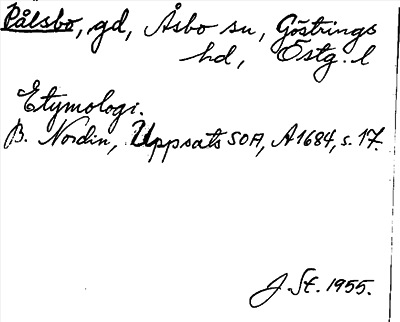 Pålsbo, gd, Åsbo sn, Göstrings
hd, Östg. l
Etymologi.
B. Nordin, Uppsats SOA, A1684, s. 17.
J. St. 1955.